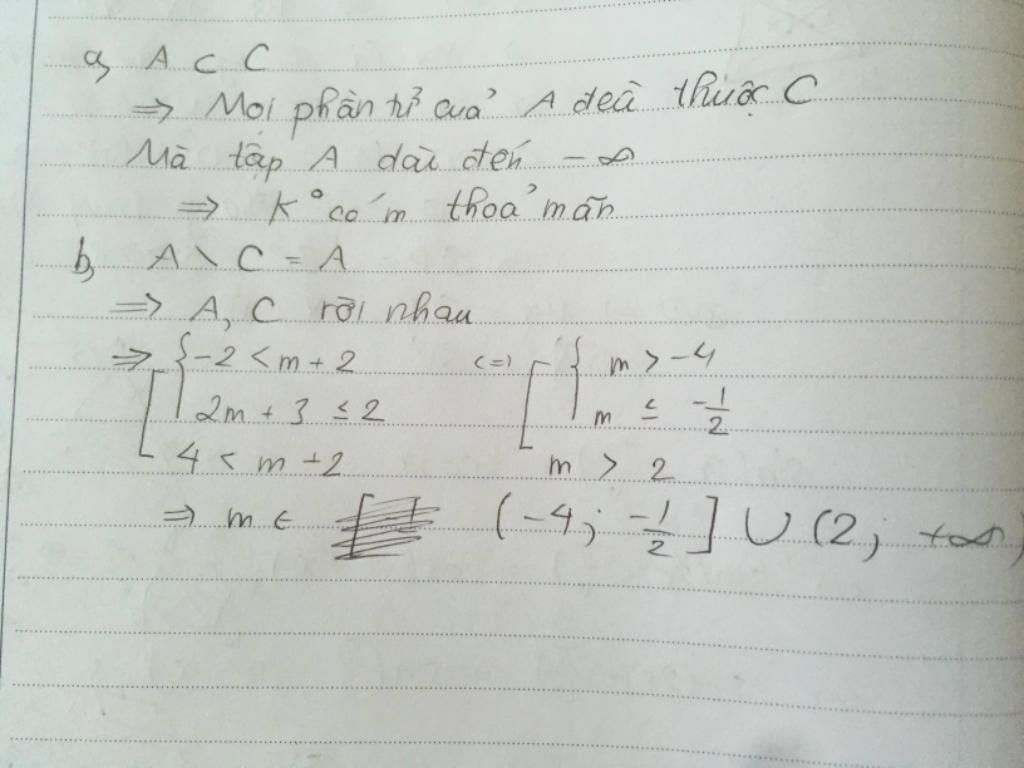 a, A ⊂ C
⇒ Mọi phần tử của A đều thuộc C
Mà tập A dài đến -∞
⇒ K° có m thoả mãn
b, A \ C = A
⇒ A, C rời nhau
⇒ [ { -2 < m + 2 (=) [ { m > -4
2m + 3 ≤ 2 m ≤ -1/2
4 < m + 2 m > 2
⇒ m ∈ (-4; -1/2] ∪ (2; +∞)